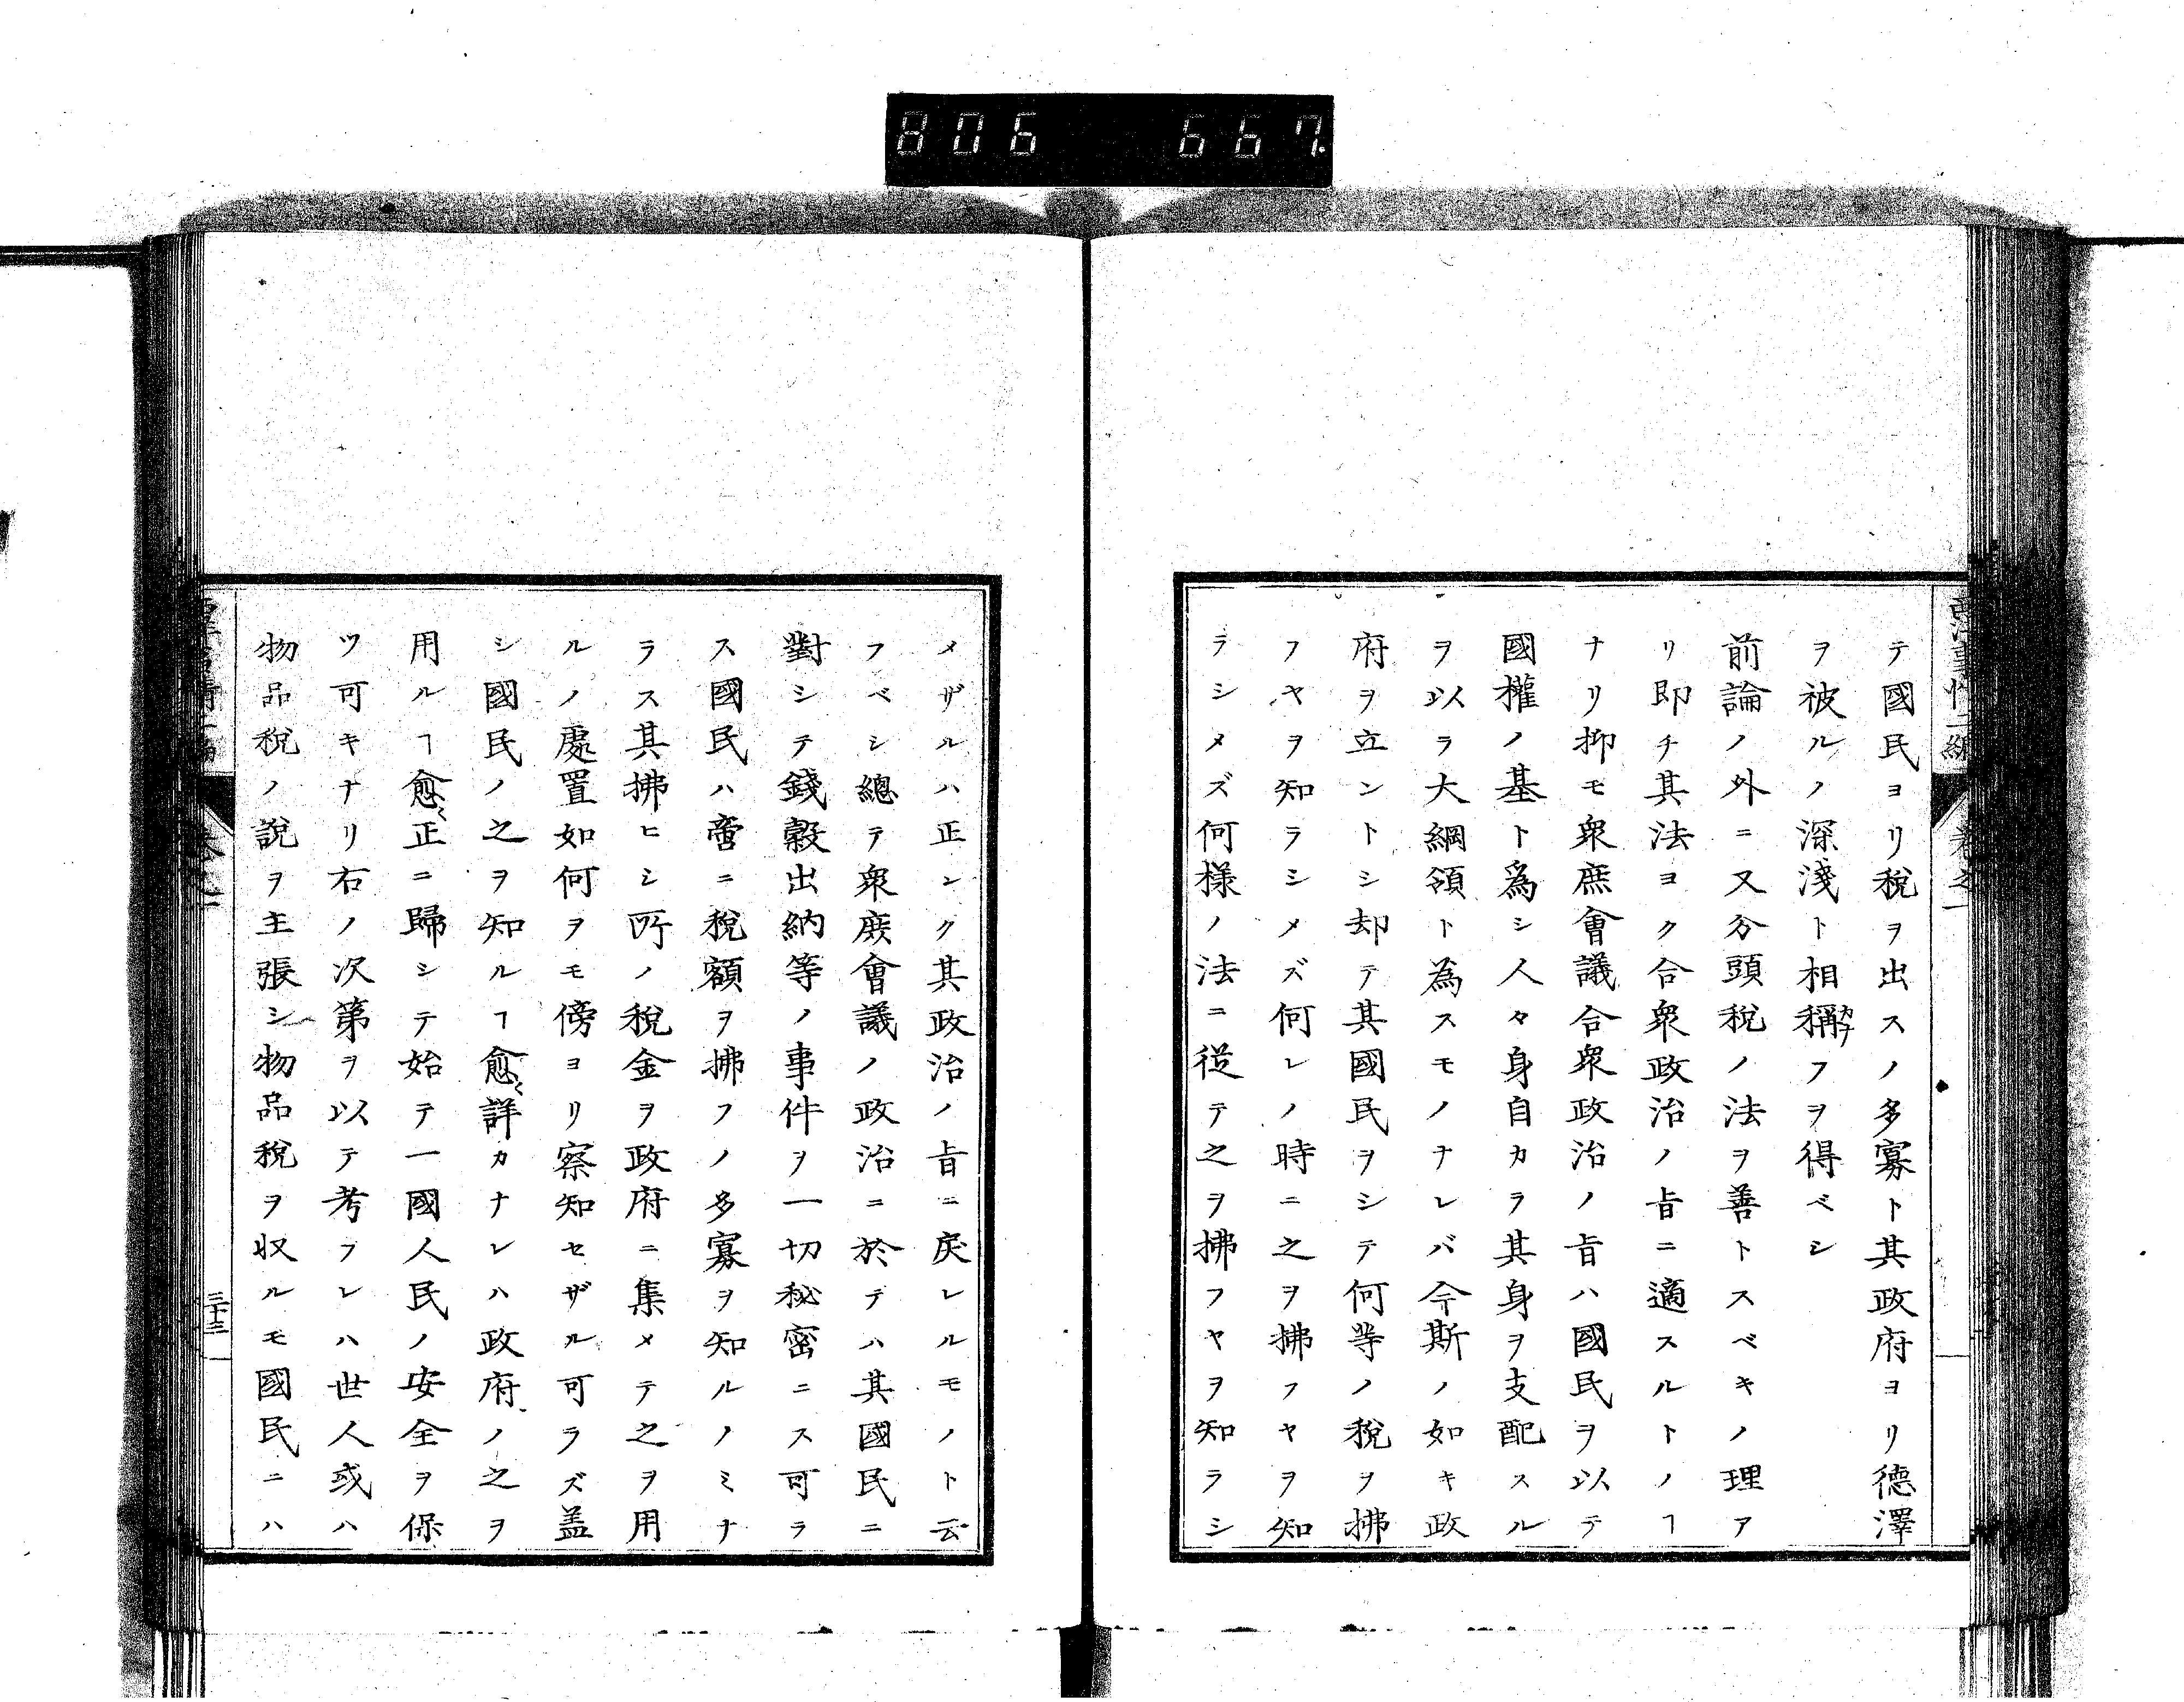 806 667.
テ國民ヨリ税ヲ出スノ多寡ト其政府ヨリ德澤
ヲ被ルノ深淺ト相稱フヲ得ベシ
前論ノ外ニ又分頭税ノ法ヲ善トスベキノ理ア
リ即チ其法ヨク合衆政治ノ旨ニ適スルトノヿ
ナリ抑モ衆庶會議合衆政治ノ旨ハ國民ヲ以テ
國權ノ基ト爲シ人々身自カラ其身ヲ支配スル
ヲ以ラ大綱領ト為スモノナレバ今斯ノ如キ政
府ヲ立ントシ却テ其國民ヲシテ何等ノ税ヲ拂
フヤヲ知ラシメズ何レノ時ニ之ヲ拂フヤヲ知
ラシメズ何様ノ法ニ從テ之ヲ拂フヤヲ知ラシ
メザルハ正シク其政治ノ旨ニ戻レルモノト云
フベシ總テ衆庶會議ノ政治ニ於テハ其國民ニ
對シテ錢穀出納等ノ事件ヲ一切秘密ニス可ラ
ス國民ハ啻ニ税額ヲ拂フノ多寡ヲ知ルノミナ
ラス其拂ヒシ所ノ税金ヲ政府ニ集メテ之ヲ用
ルノ處置如何ヲモ傍ヨリ察知セザル可ラズ盖
シ國民ノ之ヲ知ルヿ愈〻詳カナレハ政府ノ之ヲ
用ルヿ愈〻正ニ歸シテ始テ一國人民ノ安全ヲ保
ツ可キナリ右ノ次第ヲ以テ考フレハ世人或ハ
物品税ノ説ヲ主張シ物品税ヲ収ルモ國民ニハ
三十三